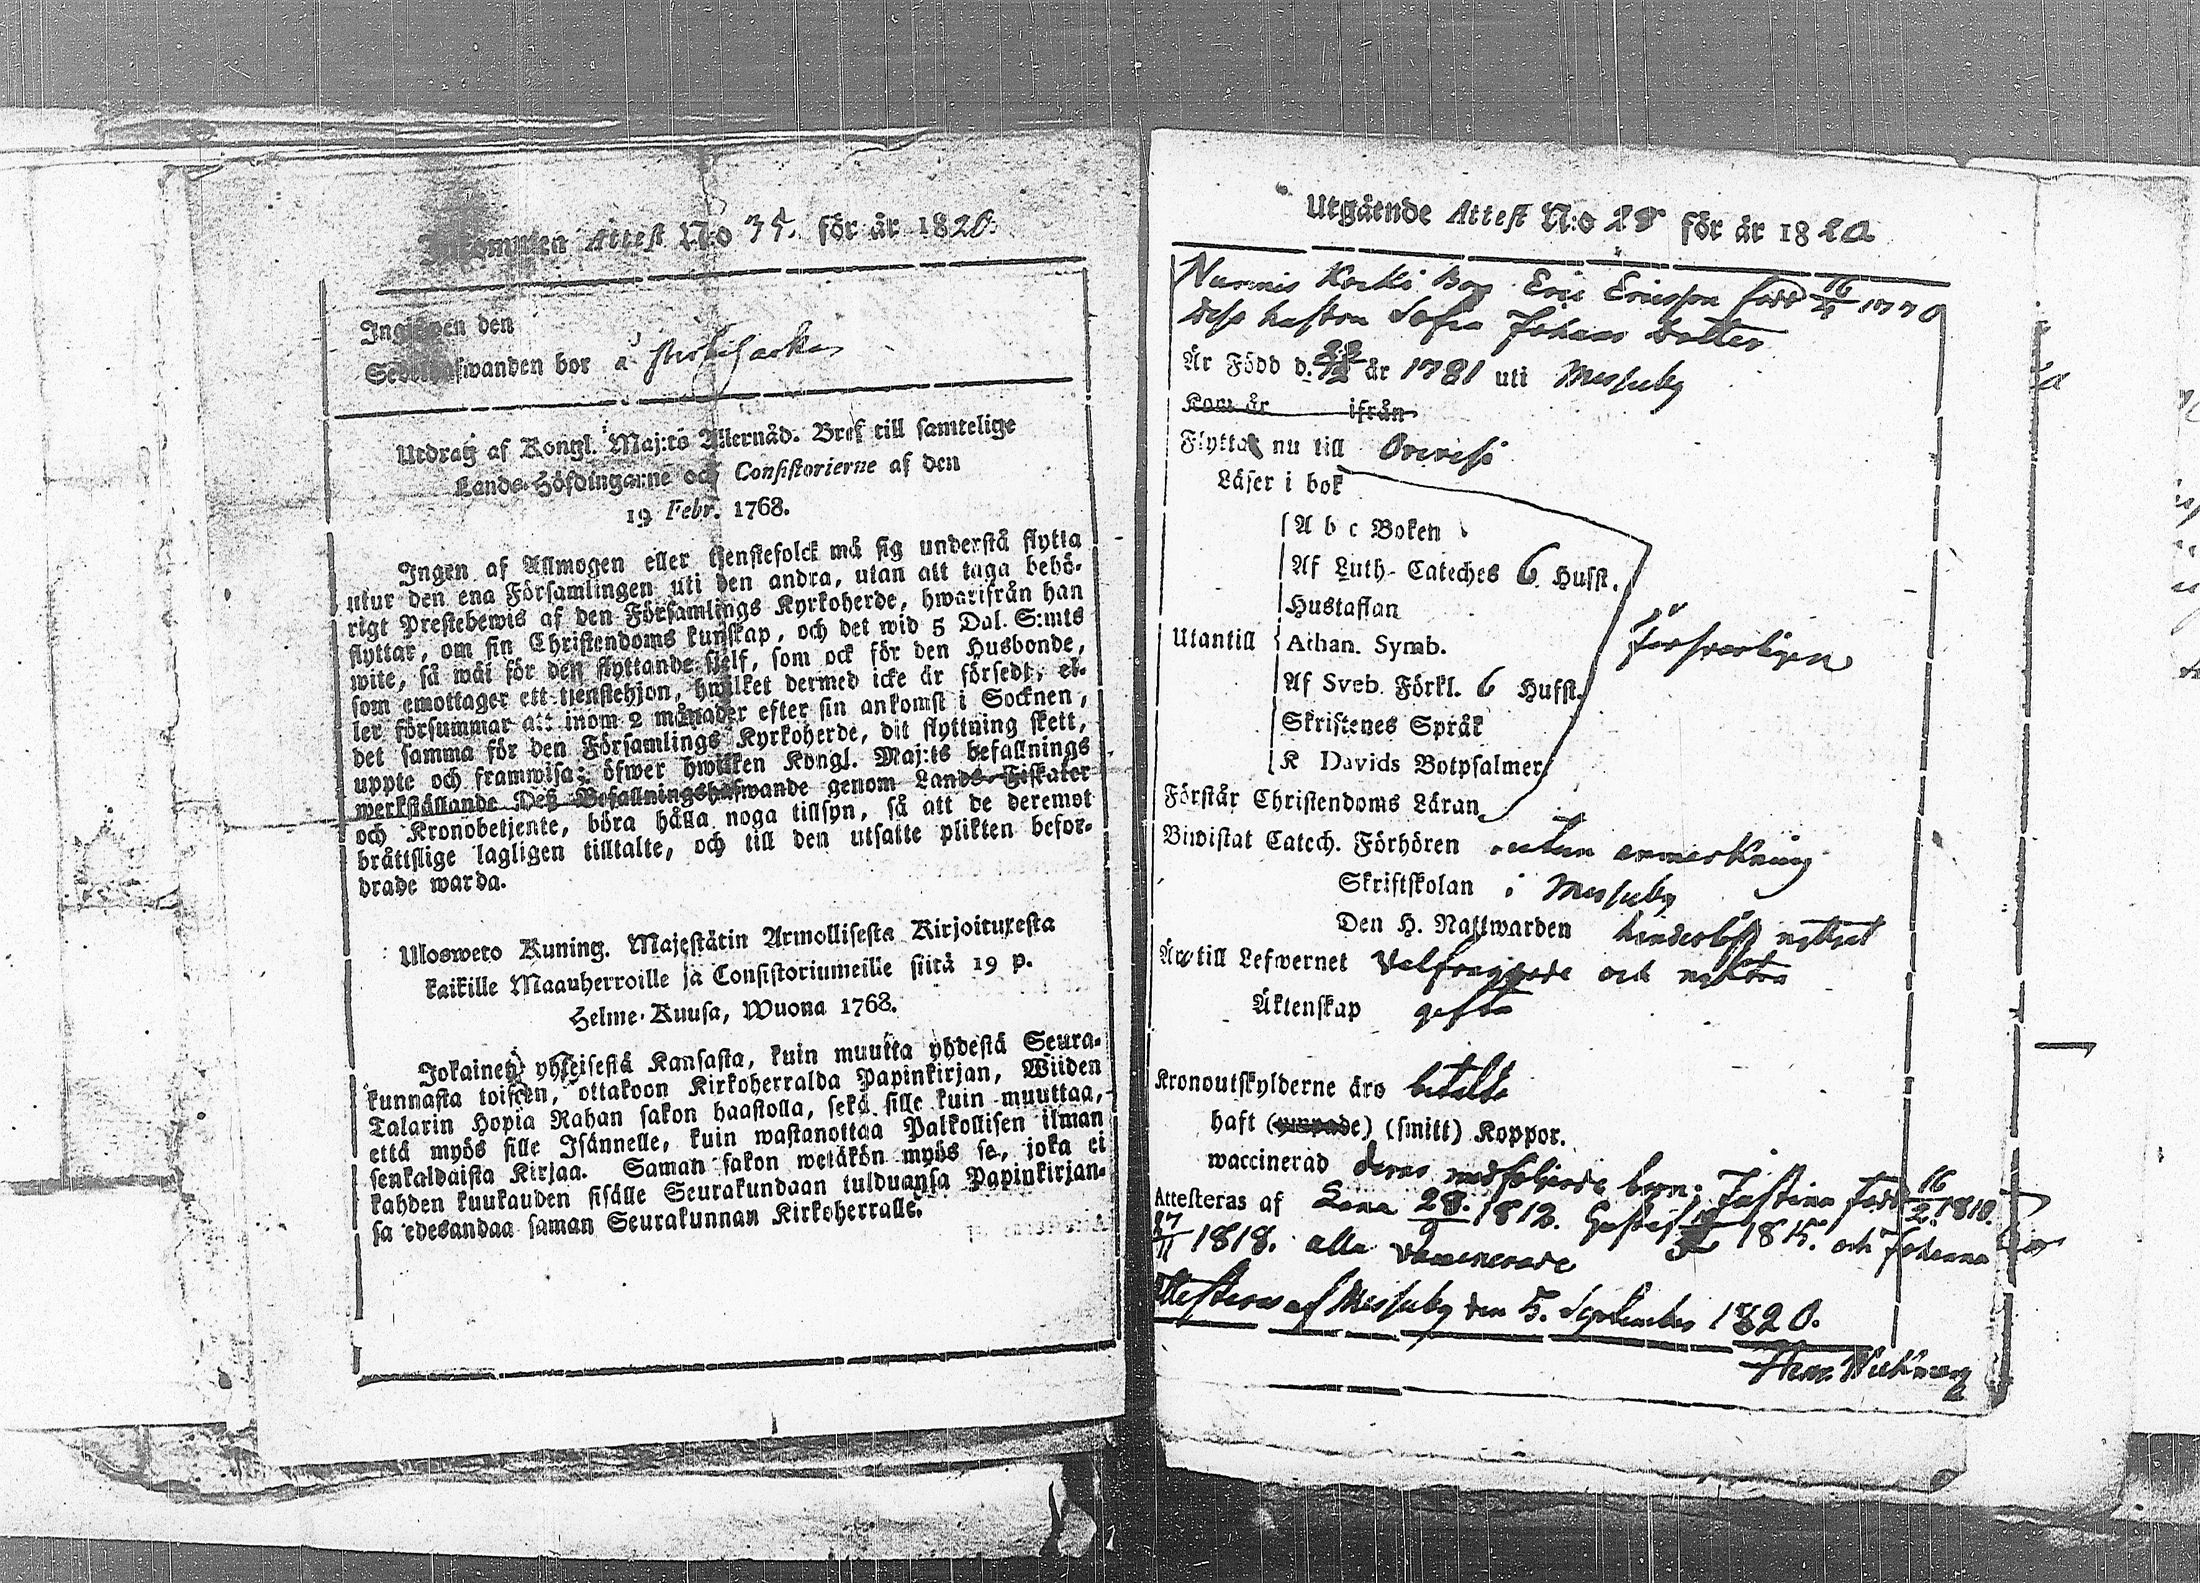 Inkommen Attest N:o 35. för år 1820.
Ingifwen den
Sedelhafwanden bor å
Utdrag af Kongl. Maj:ts Allernåd. Bref till samtelige
Lands-Höfdingarne och Consistorierne af den
19 Febr. 1768.
Ingen af Allmogen eller tjenstefolck må sig understå flytta
utur den ena Församlingen uti den andra, utan att taga behö-
rigt Prestebewis af den Församlings Kyrkoherde, hwarifrån han
flyttar, om sin Christendoms kunskap, och det wid 5 Dal. S:mts
wite, så wäl för den flyttande sjelf, som ock för den Husbonde,
som emottager ett tjenstehjon, hwilket dermed icke är försedt, el-
ler försummar att inom 2 månader efter sin ankomst i Socknen,
det samma för den Församlings Kyrkoherde, dit flyttning skett,
uppte och framwisa; öfwer hwilken Kongl. Maj:ts befallnings
werkställande Deß Befallningshafwande genom Lands-Fiskaler
och Kronobetjente, böra hålla noga tillsyn, så att de deremot
bråttslige lagligen tilltalte, och till den utsatte plikten befor-
drade warda.
Ulosweto Kuning. Majestätin Armollisesta Kirjoituxesta
kaikille Maanherroille ja Consistoriumeille siitä 19 p.
Helme-Kuusa, Wuona 1768.
Jokainen yhteisestä Kansasta, kuin muutta yhdestä Seura-
kunnasta toiseen, ottakoon Kirkoherralda Papinkirjan, Wiiden
Talarin Hopia Rahan sakon haastolla, sekä sille kuin muuttaa,
että myös sille Isännelle, kuin wastanottaa Palkollisen ilman
senkaldaista Kirjaa. Saman sakon wetäkön myös se, joka ei
kahden kuukauden sisälle Seurakundaan tulduansa Papinkirjan-
sa edesandaa saman Seurakunnan Kirkoherralle.
Utgående Attest N:o 28 för år 1820
Nurmis Korki Bon Eric Ericsson född 16/4 1770
Dess hustru Sofia Johans Dotter
Är Född d. 22/12 år 1781 uti Messuby
Kom år ifrån
Flytta nu till Orivesi
Läser i bok
A b c Boken
Af Luth. Cateches 6 Hufst.
Hustaflan
Utantill Athan. Symb.
Af Sveb. Förkl. 6 Hufst.
Skriftenes Språk
K Davids Botpsalmer
försvarligen
Förstår Christendoms Läran
Biwistat Catech. Förhören utan anmerkning
Skriftskolan i Messuby
Den H. Nattwarden hinderlöst nyttiat
Äro till Lefwernet Välfreydade och nyktra
Äktenskap gifta
Kronoutskylderne äro betalte
haft (ympade) (smitt) Koppor.
waccinerad deras medföljande barn; Justina född 16/2 1810.
Attesteras af Lena 28/9 1812. Gustaf 1815. och Johanna
17/11 1818. alla vaccinerade
Attesteras af Messuby den 5. September 1820.